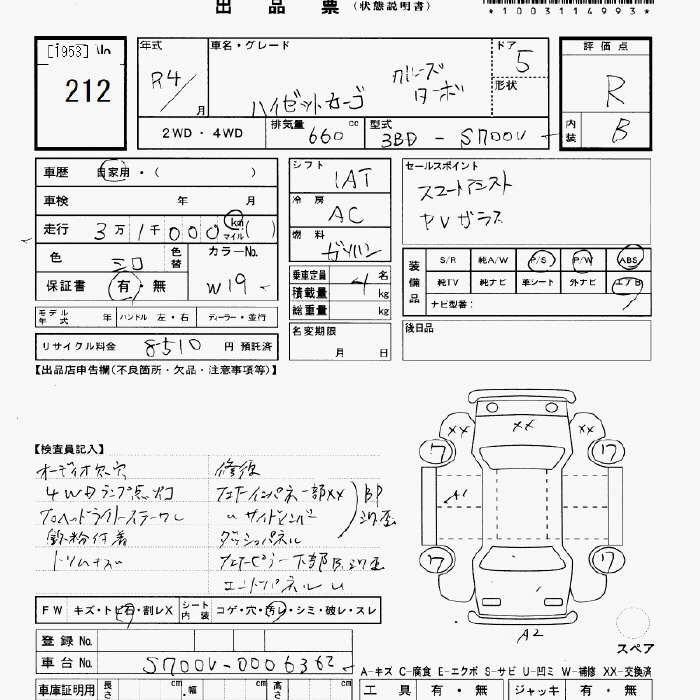 出 品 票 (状態説明書)
*1003114993*
[1953]
212
年式 R4/ 月
車名・グレード ハイゼットカーゴ クルーズターボ
ドア 5
形状
評価点 R
内装 B
2WD・4WD 排気量 660 cc 型式 3BD - S700V
車歴 自家用・( )
車検 年 月
走行 3万 1千 000 km マイル ( )
色 シロ 色替 カラーNo. W19
保証書 有・無
モデル年式 年 ハンドル 左・右 ディーラー・並行
リサイクル料金 8510 円 預託済
シフト IAT
冷房 AC
燃料 ガソリン
乗車定員 4 名
積載量 kg
総重量 kg
名変期限 月 日
セールスポイント
スマートアシスト
PVガラス
装備品 S/R 純A/W P/S P/W ABS
純TV 純ナビ 車シート 外ナビ エアB
ナビ型番:
後日品
【出品店申告欄(不良箇所・欠品・注意事項等)】
【検査員記入】
オーディオ欠 穴
4WDランプ点灯
鉄粉付着
トリムキズ
修復
ダッシュパネル
FW キズ・トビ石・割レX シート内装 コゲ・穴・汚レ・シミ・破レ・スレ
登録 No.
車台 No. S700V-0006362
車庫証明用 長さ cm ・幅 cm 高さ cm
XX
XX
XX
ワ
ワ
A1
ワ
ワ
A2
スペア
A-キズ C-腐食 E-エクボ S-サビ U-凹ミ W-補修 XX-交換済
工具 有・無 ジャッキ 有・無